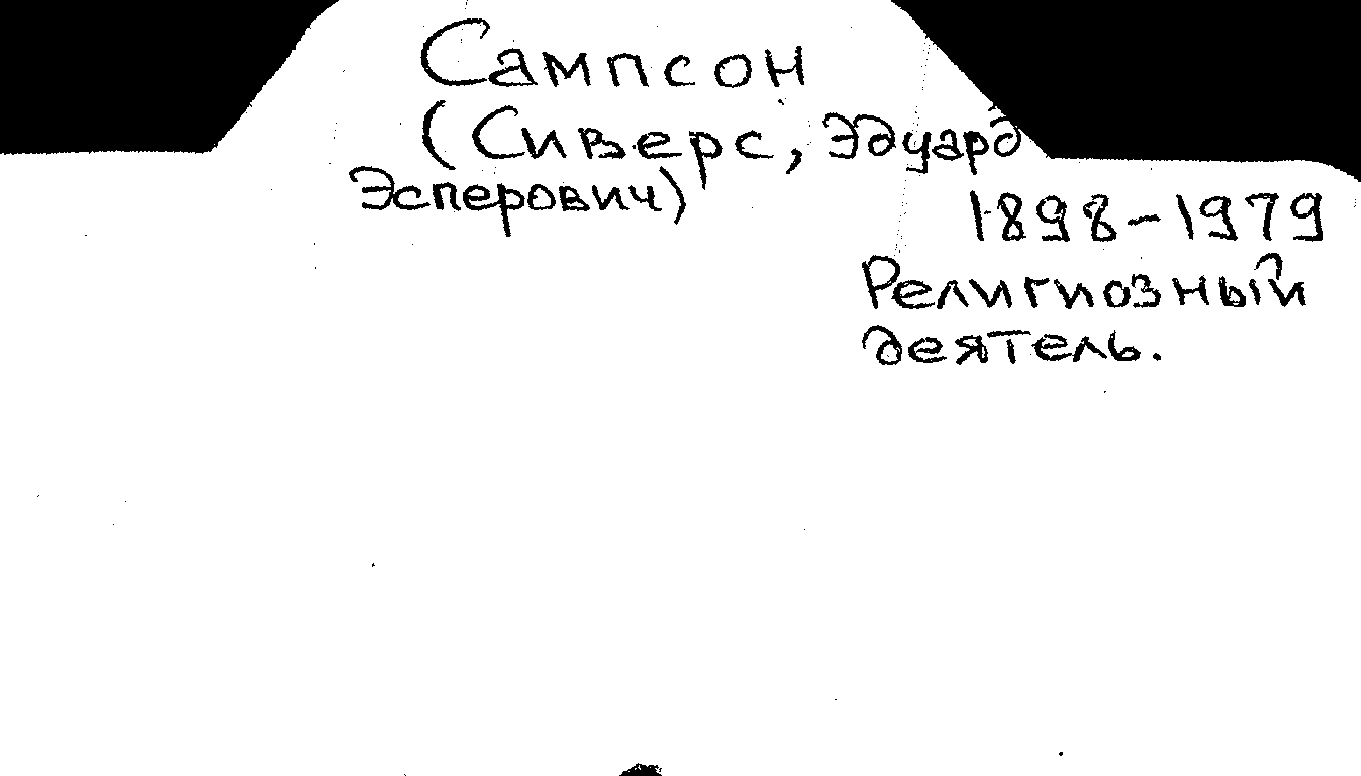 Сампсон
(Сиверс, Эдуард
Эсперович)
1898-1979
Религиозный
деятель.